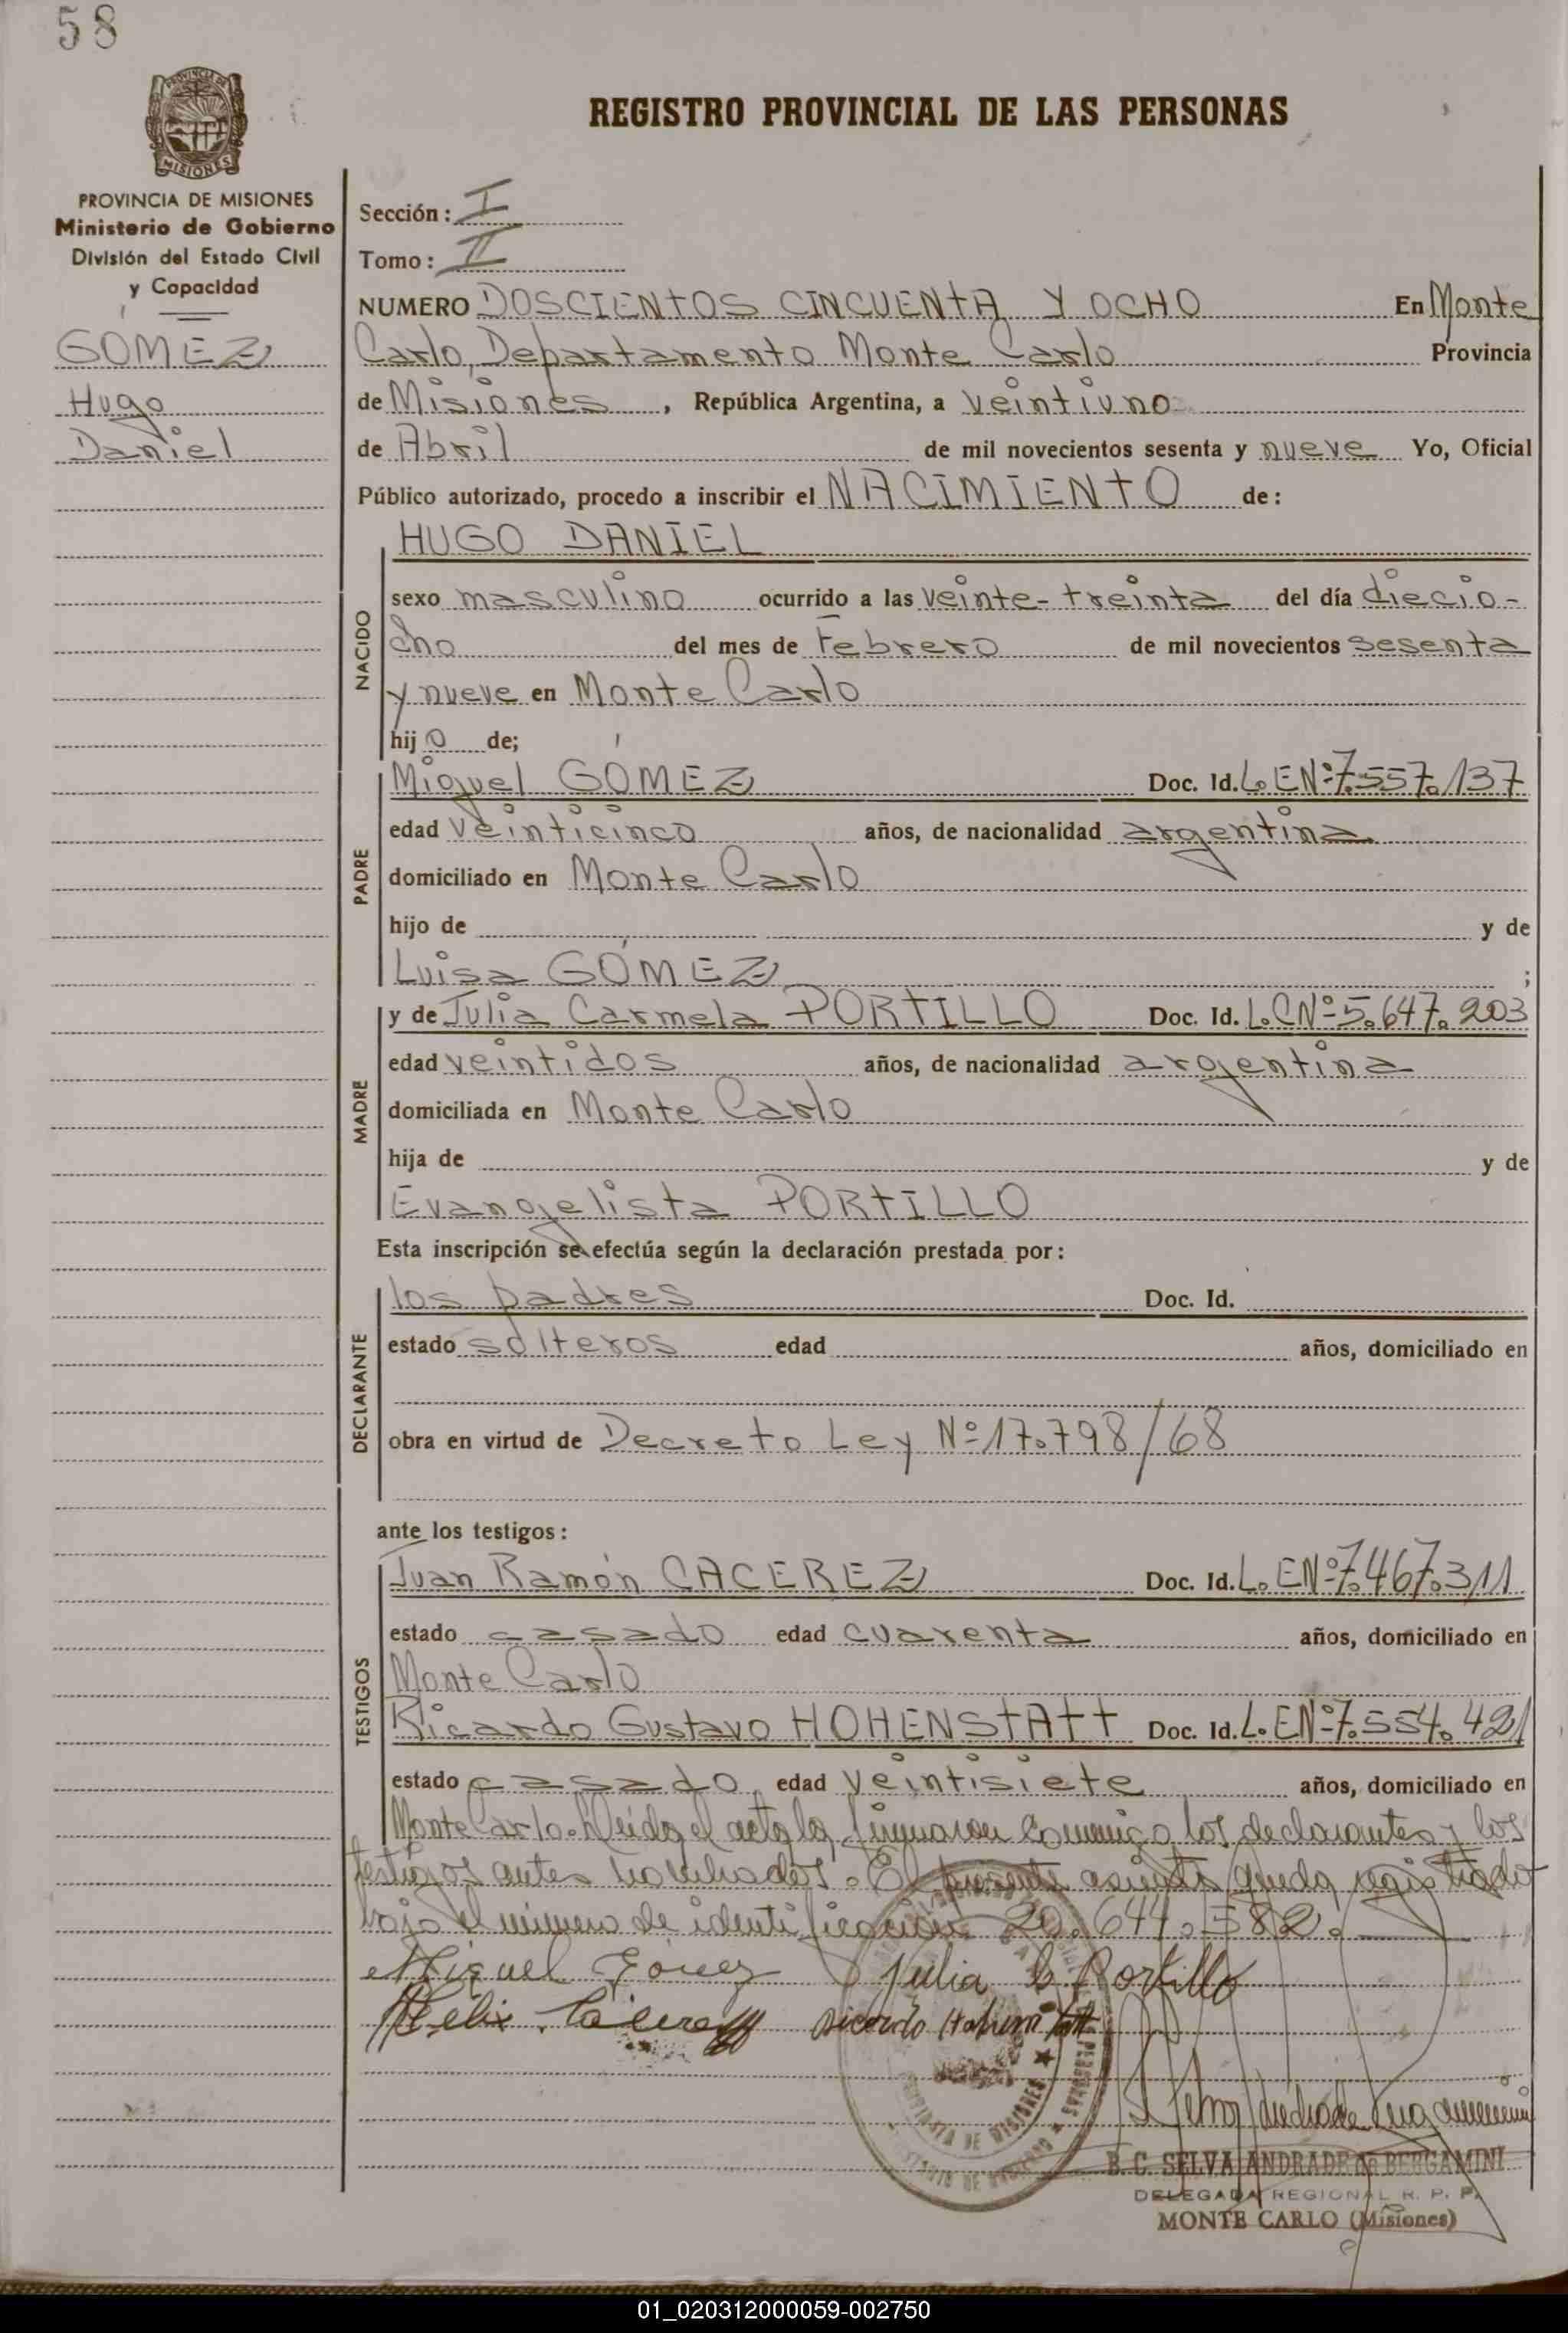 58
PROVINCIA DE MISIONES
Ministerio de Gobierno
División del Estado Civil
y Capacidad
GÓMEZ
Hugo
Daniel
REGISTRO PROVINCIAL DE LAS PERSONAS
Sección: I
Tomo: II
NUMERO DOSCIENTOS CINCUENTA Y OCHO En Monte
Carlo, Departamento Monte Carlo Provincia
de Misiones, República Argentina, a veintiuno
de Abril de mil novecientos sesenta y nueve Yo, Oficial
Público autorizado, procedo a inscribir el NACIMIENTO de:
NACIDO
HUGO DANIEL
sexo masculino ocurrido a las veinte-treinta del día diecio-
cho del mes de Febrero de mil novecientos sesenta
y nueve en Monte Carlo
hijo de;
PADRE
Miguel GÓMEZ Doc. Id. L.ENº7.557.137
edad veinticinco años, de nacionalidad argentina
domiciliado en Monte Carlo
hijo de y de
Luisa GÓMEZ ;
MADRE
y de Julia Carmela PORTILLO Doc. Id. L.CNº5.647.203
edad veintidos años, de nacionalidad argentina
domiciliada en Monte Carlo
hija de y de
Evangelista PORTILLO
Esta inscripción se efectúa según la declaración prestada por:
DECLARANTE
los padres Doc. Id.
estado solteros edad años, domiciliado en
obra en virtud de Decreto Ley Nº17.798/68
ante los testigos:
TESTIGOS
Juan Ramón CACEREZ Doc. Id. L.ENº7.467.311
estado casado edad cuarenta años, domiciliado en
Monte Carlo
Ricardo Gustavo HOHENSTATT Doc. Id. L.ENº7.554.421
estado casado edad veintisiete años, domiciliado en
Monte Carlo. Leída el acta la firmaron conmigo los declarantes y los
testigos antes nombrados. El presente asiento queda registrado
bajo el número de identificación 20.644.582.
Miguel Gómez Julia C Portillo
B. C. SELVA ANDRADE DE BERGAMINI
DELEGADA REGIONAL R. P. P.
MONTE CARLO (Misiones)
01_020312000059-002750